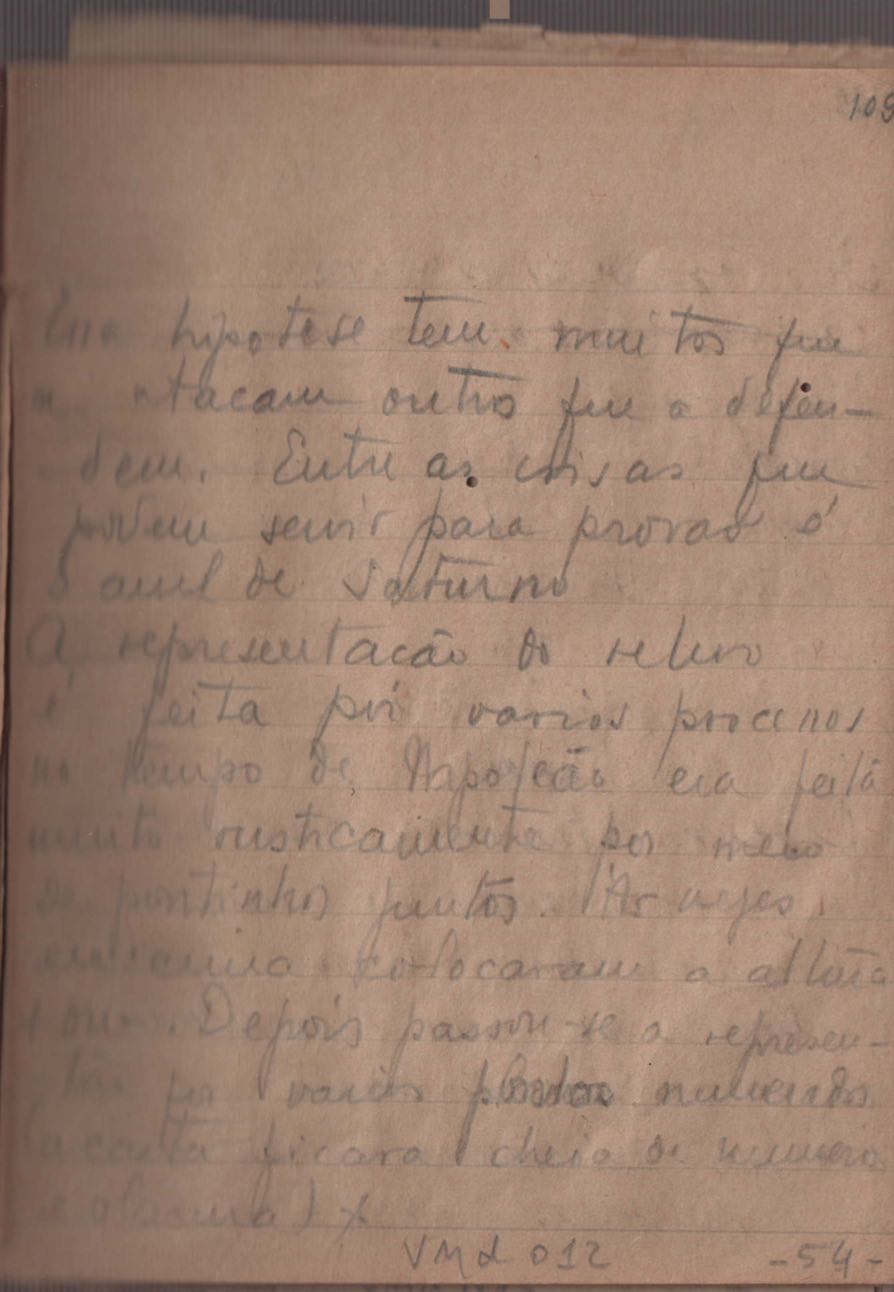 109
Essa hipotese tem muitos que
a atacam outros que a defen-
dem. Entre as coisas que
podem servir para provar é
o anel de Saturno
A representacão do relevo
é feita por varios processos
no tempo de Napoleão era feita
muito rusticamente por meio
de pontinhos juntos. As vezes
em cima colocavam a altura
Depois passou-se a represen-
por varios pontos numerados
(a carta ficava cheia de numeros
e obscura) x
VMd 012 -54-